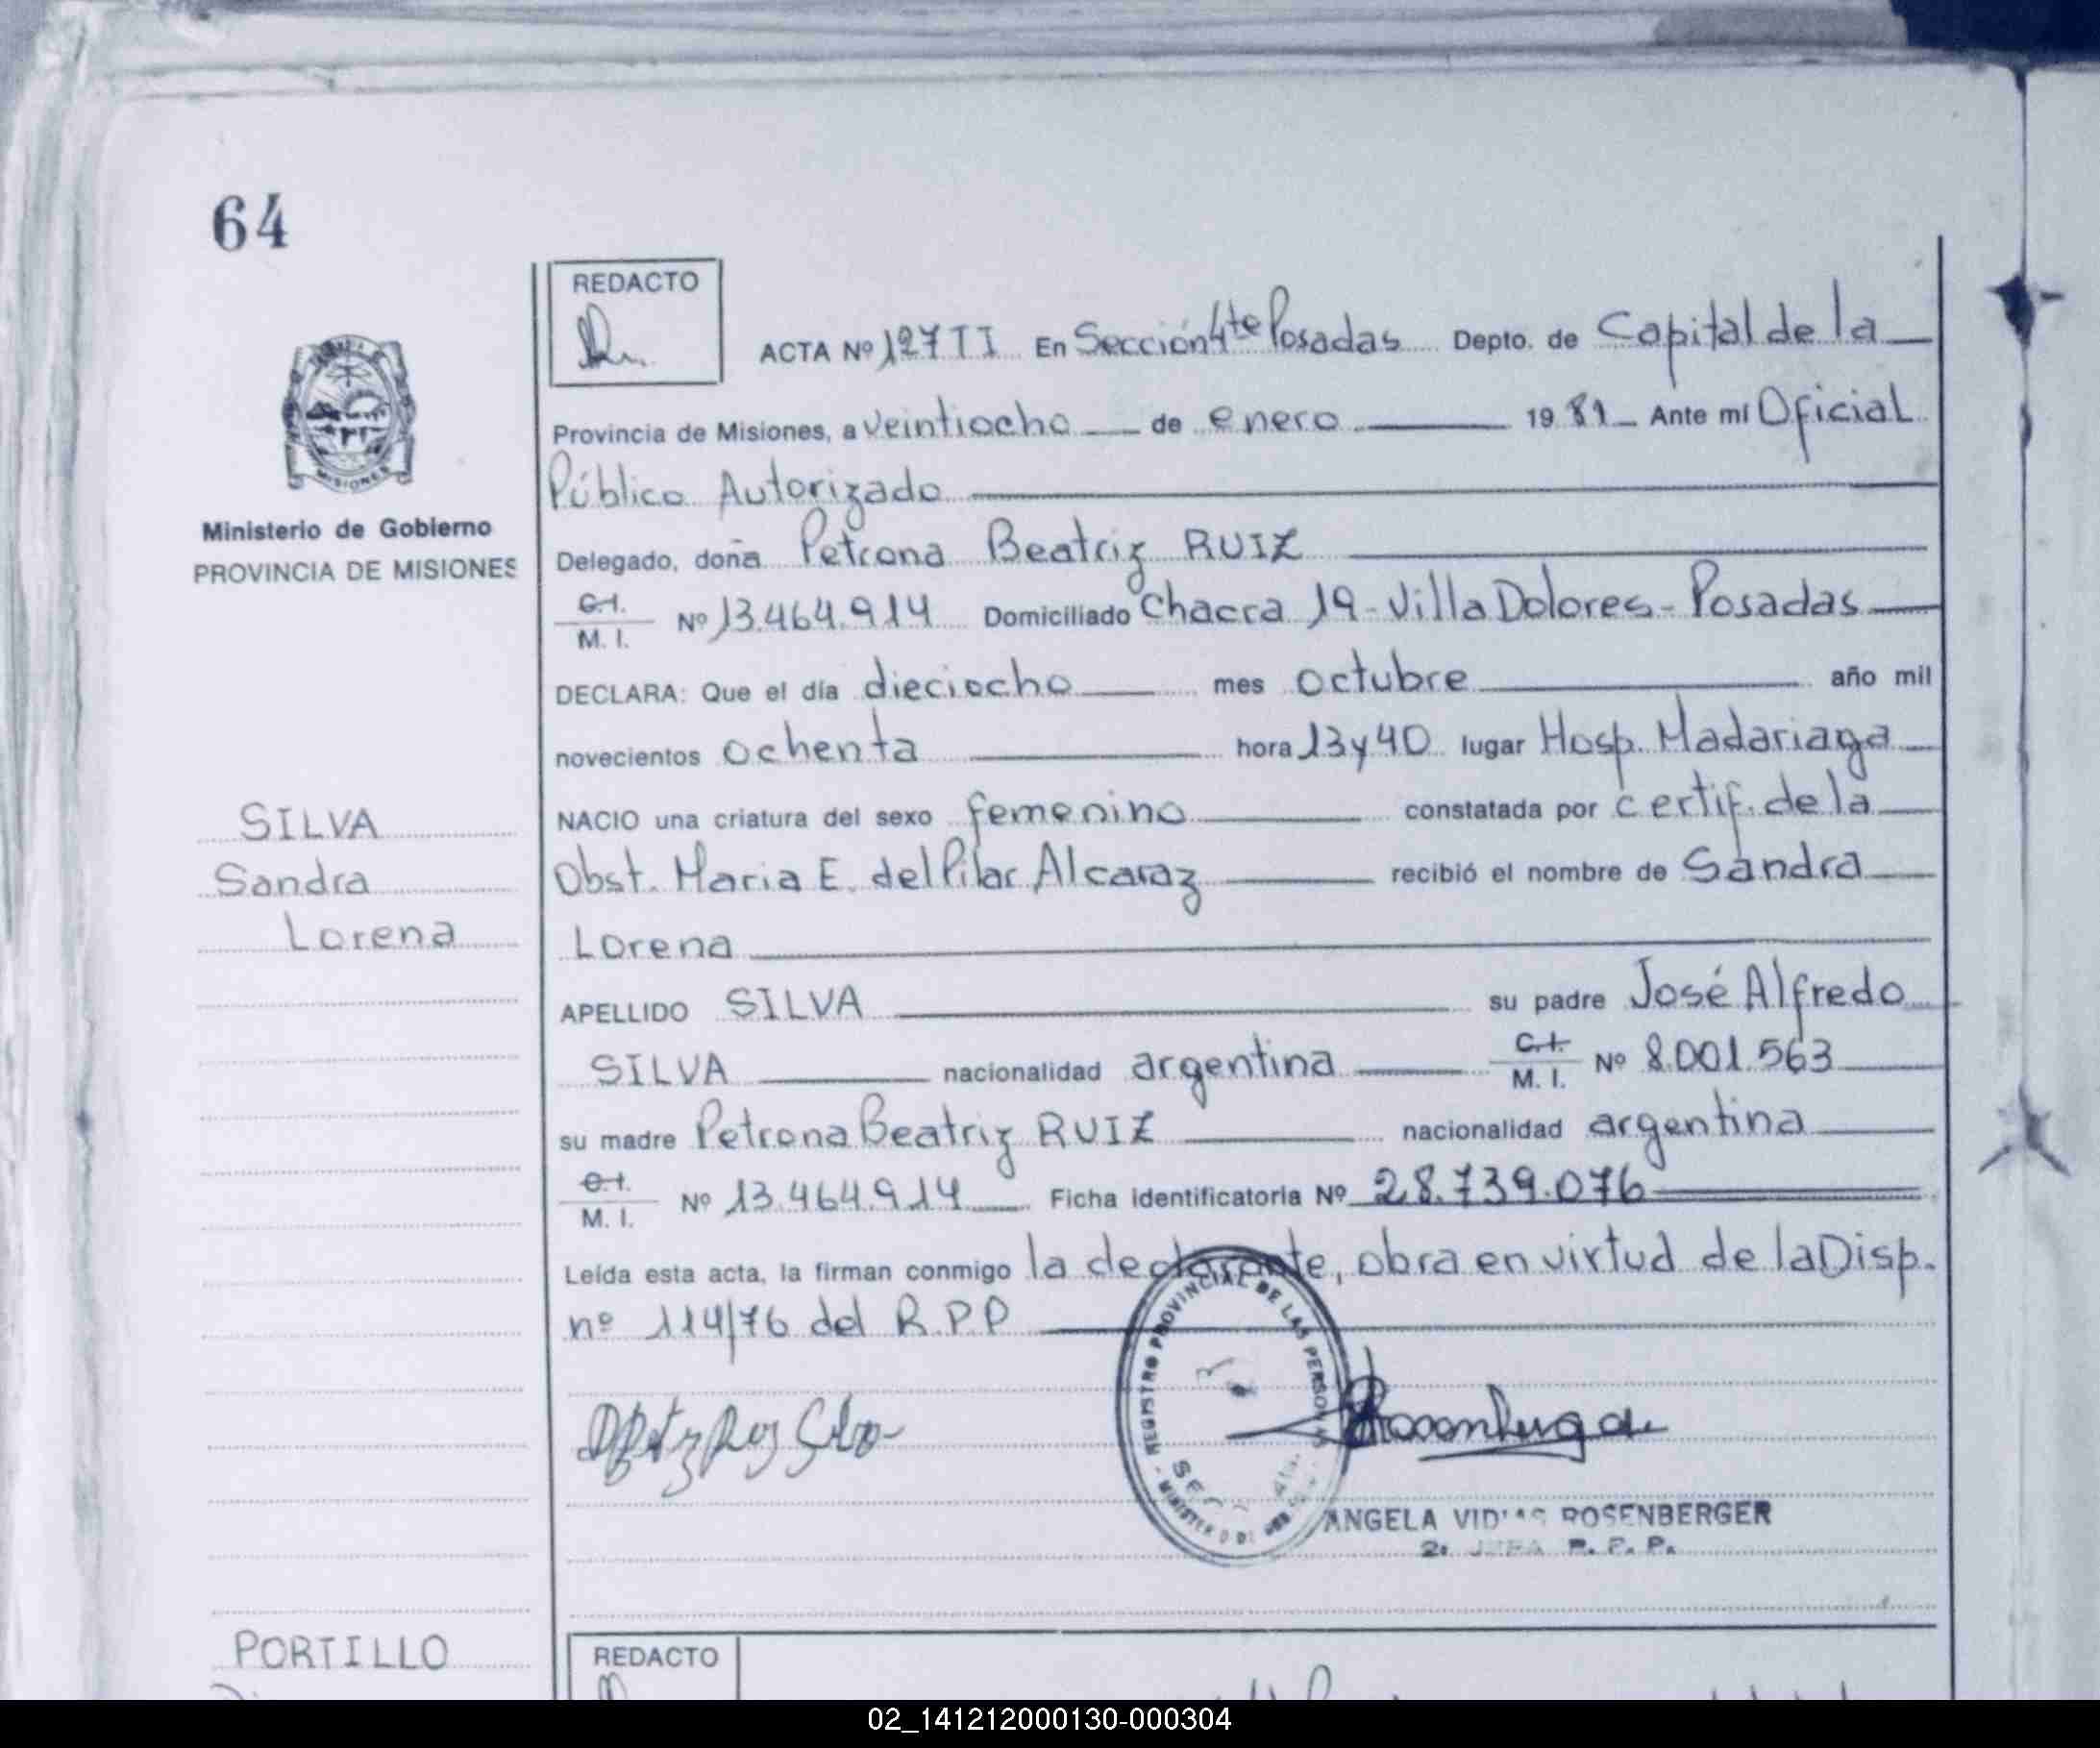 64
REDACTO
ACTA Nº 127 TI En Sección 4ta Posadas Depto. de Capital de la
Provincia de Misiones, a veintiocho de enero 1981 Ante mí Oficial
Público Autorizado
Ministerio de Gobierno
PROVINCIA DE MISIONES
Delegado, doña Petrona Beatriz RUIZ
C.I. M. I. Nº 13.464.914 Domiciliado Chacra 19 - Villa Dolores - Posadas
DECLARA: Que el día dieciocho mes octubre año mil
novecientos ochenta hora 13 y 40 lugar Hosp. Madariaga
SILVA
Sandra
Lorena
NACIO una criatura del sexo femenino constatada por certif. de la
Obst. Maria E. del Pilar Alcaraz recibió el nombre de Sandra
Lorena
APELLIDO SILVA su padre José Alfredo
SILVA nacionalidad argentina C.I. M. I. Nº 8.001.563
su madre Petrona Beatriz RUIZ nacionalidad argentina
C.I. M. I. Nº 13.464.914 Ficha identificatoria Nº 28.739.076
Leída esta acta, la firman conmigo la declarante, obra en virtud de la Disp.
nº 114/76 del R.P.P
REGISTRO PROVINCIAL DE LAS PERSONAS
ANGELA ROSENBERGER
R. P. P.
PORTILLO
REDACTO
02_141212000130-000304